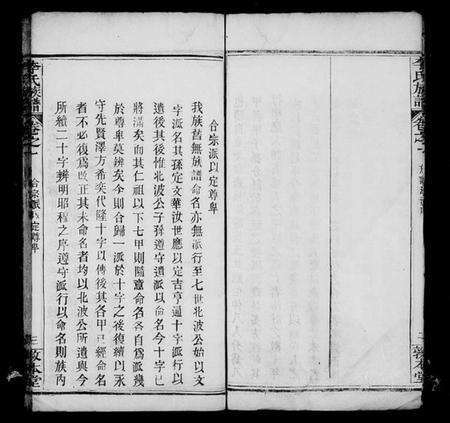 合宗派以定尊卑
我族舊無族譜命名亦無派行至七世北波公始以文
字派名其孫定文華汝世應以定吉亨通十字派行以
遺後其後惟北波公子孫遵守遺派以命名今十字已
將滿矣而其仁祖以下七甲則隨意命名各自爲派幾
於尊卑莫辨矣今則合歸一派於十字之後復續以永
守先賢澤方希奕代隆十字以傳後其各甲已經命名
者不必復爲改正其未命名者均以北波公所遺與今
所續二十字辨明昭程之序遵守派行以命名則族內
李氏族譜
卷之一
合宗派以定尊卑
三
敦本堂
李氏族譜
卷之一
二
敦本堂